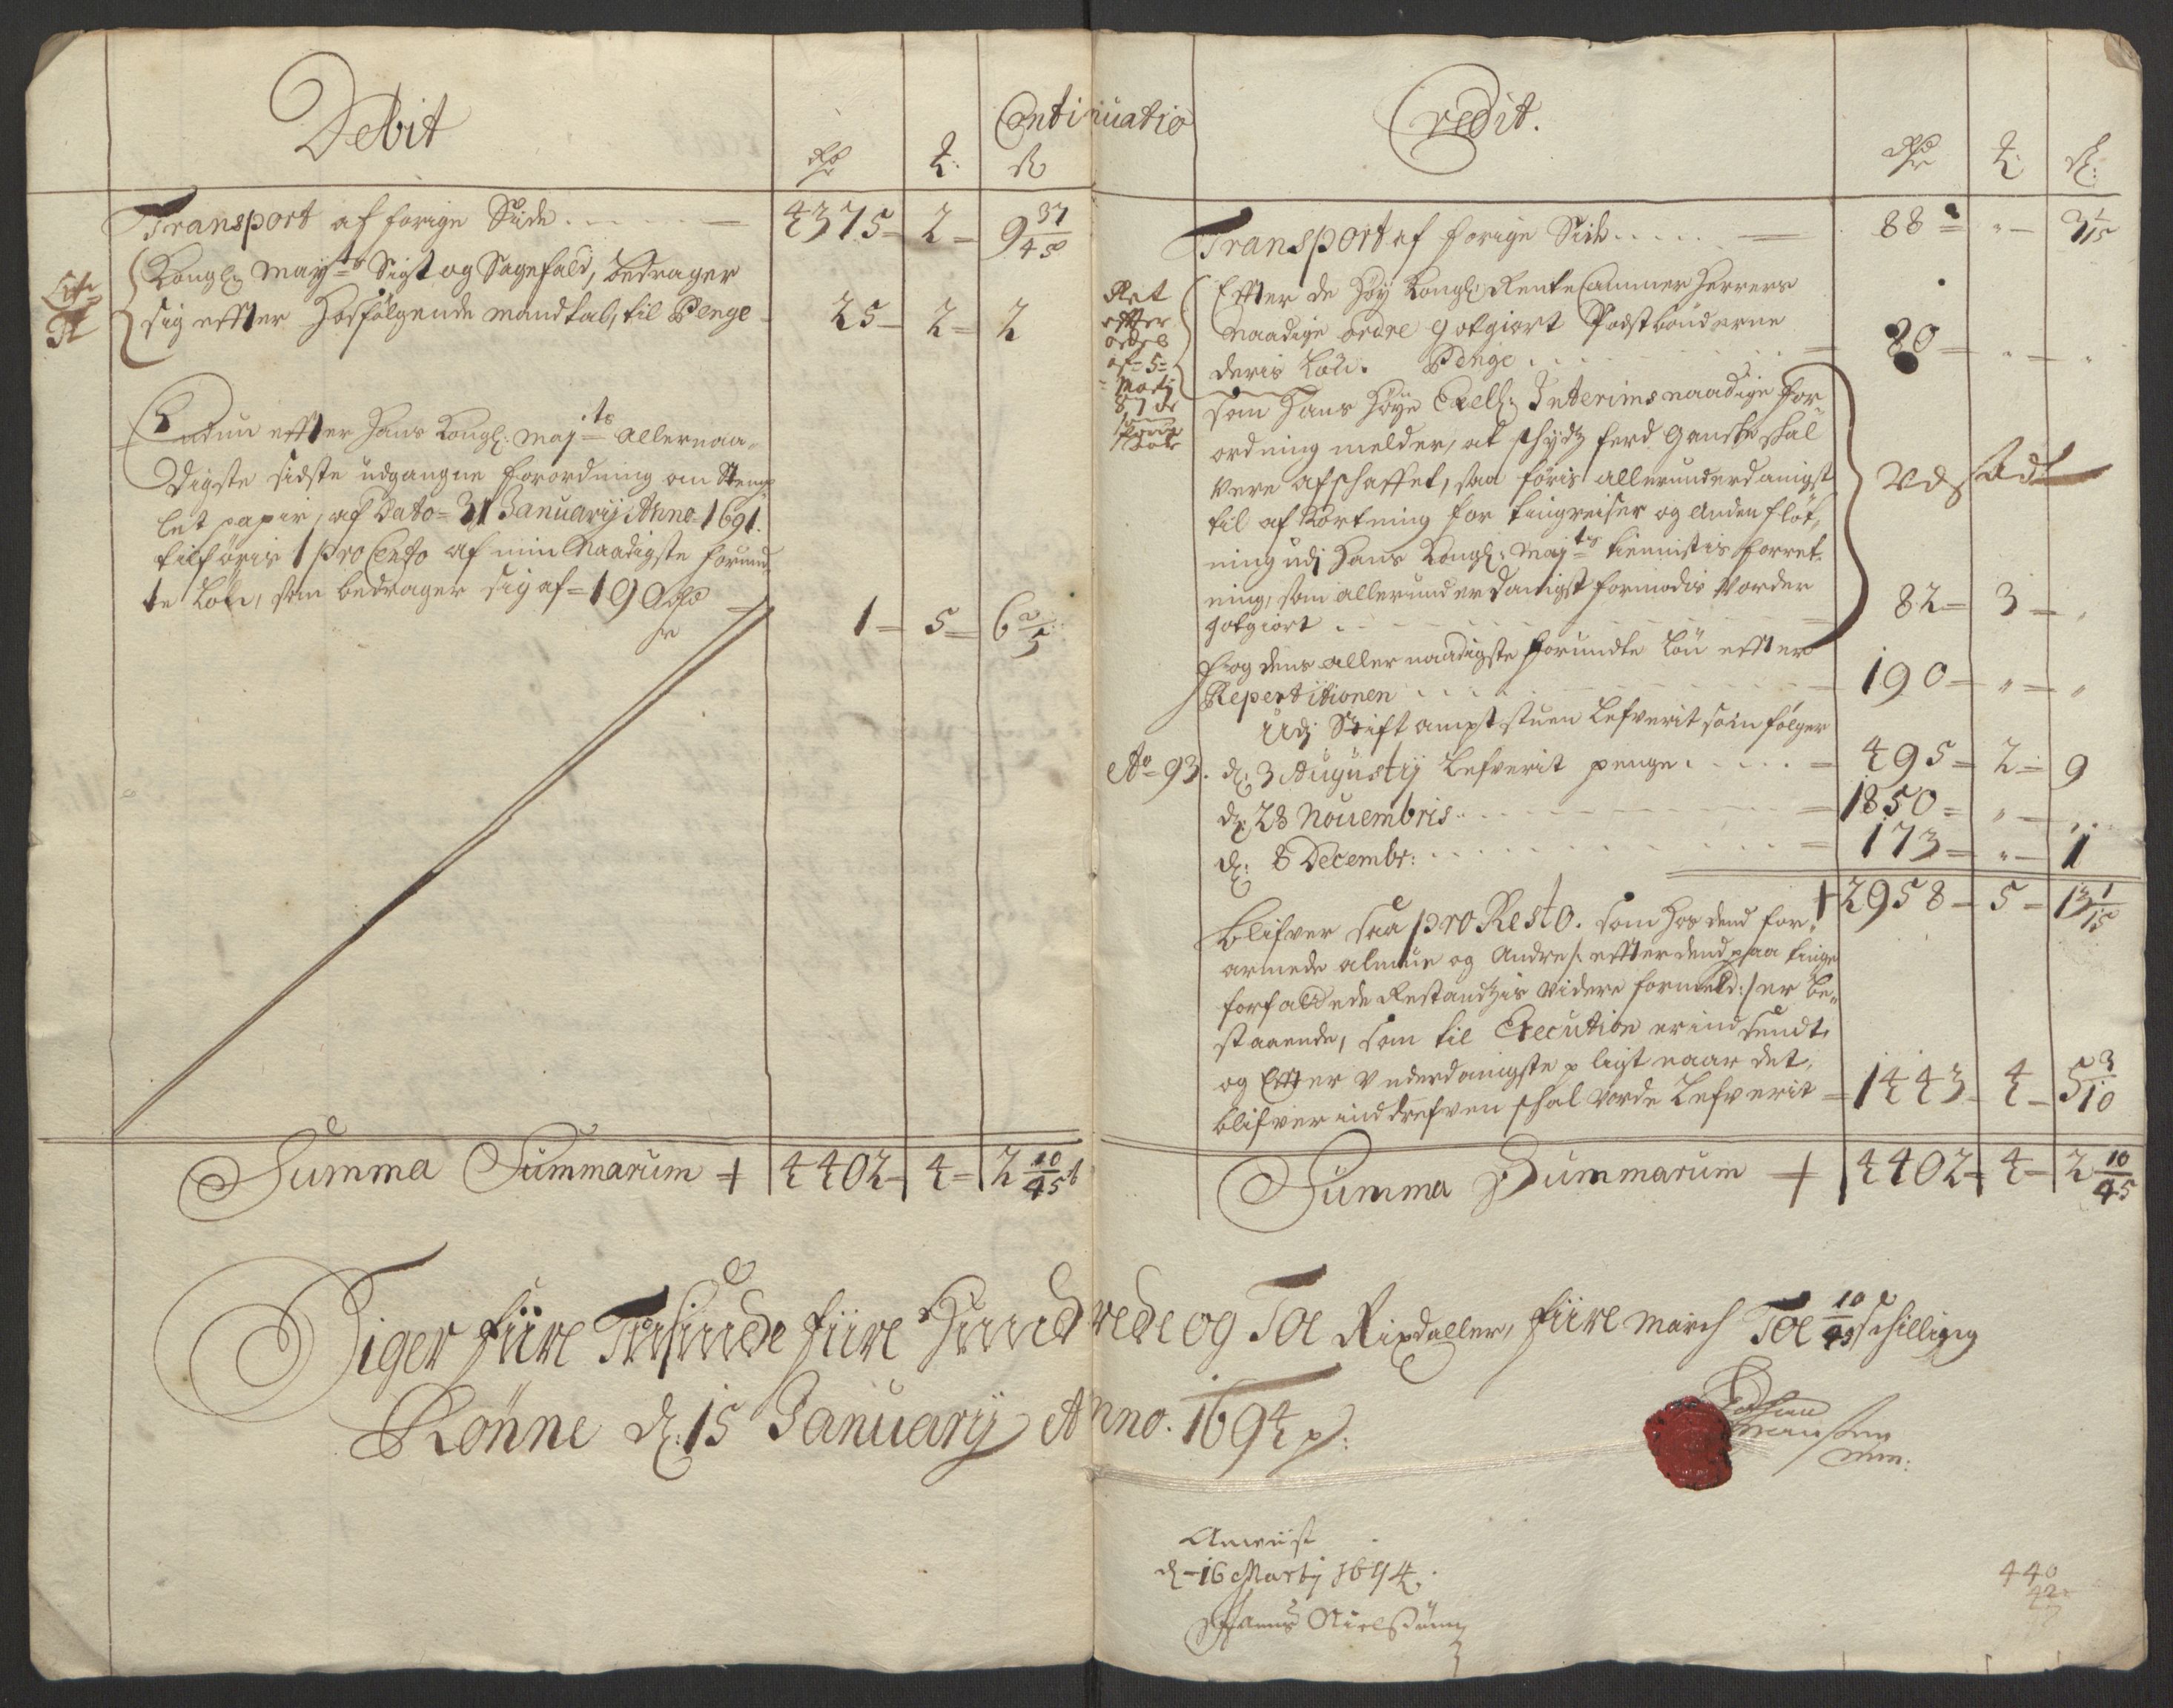 Debit
Continuatio
Transport af forige Side 4375 - 2 - 9 37/45
Kongl: Mayts Sigt og Sagefald, bedrager
sig effter hosfølgende mandtal, til Penge 25 - 2 - 2
Endnu effter Hans Kongl: Majts allernaa-
digste sidste udgangne forordning om Stemp
let papir, af Dato 31 Januarij Anno 1691.
tilføris 1 pro Cento af min Naadigste forund
te Løn, som bedrager sig af 190 rdr 1 - 5 - 6 2/5
Summa Summarum + 4402 - 4 - 2 10/45
Credit.
Transport af forige Side 88 - " - 3 1/15
Ret
effter
af 5
Martj
Effter de Høy Kongl: Rente Cammer Herrers
naadige ordre godgiort Postbønderne
deris Løn. Penge 20 - " - "
som Hans Høye Exell: Interims naadige for
ordning melder, at schydtz ferd ganske skal
vere afschaffet, saa føris allerunderdanigst
til af Kortning for tingreiser og anden fløt,
ning udj Hans Kongl: Majts tiennistis forret-
ning, som allerunderdanigst formodis vorder
godgiort 82 - 3 - "
Udsadt
Fogdens aller naadigste forundte Løn effter
Repertitionen 190 - " - "
Udj Stiftampt stuen Lefverit som følger
Ao 93. d: 3 Augustij Lefverit penge 495 - 2 - 9
d: 28 Nouembris 1850 - " - "
d: 8 Decembr: 173 - " - 1
+ 2958 - 5 - 13 1/15
Blifver saa pro Resto. som hos dend for-
armede almue og Andre /: effter dend paa tinge
forfattede Restandtzis videre formeld :/ er be-
staaende, som til Execution er indsendt,
og Effter Underdanigste pligt naar det,
blifver inddrefven schal vorde Lefverit 1443 - 4 - 5 3/10
Summa Summarum + 4402 - 4 - 2 10/45
Siger fiire Tusinde fiire Hundrede og Toe Rixdaller, fiire march Toe 10/45 schilling
Rønne d: 15 Januarij Anno. 1694 p:
mm:
Anvist
d - 16 Martij 1694.
Hanns Nielssønn
440
42